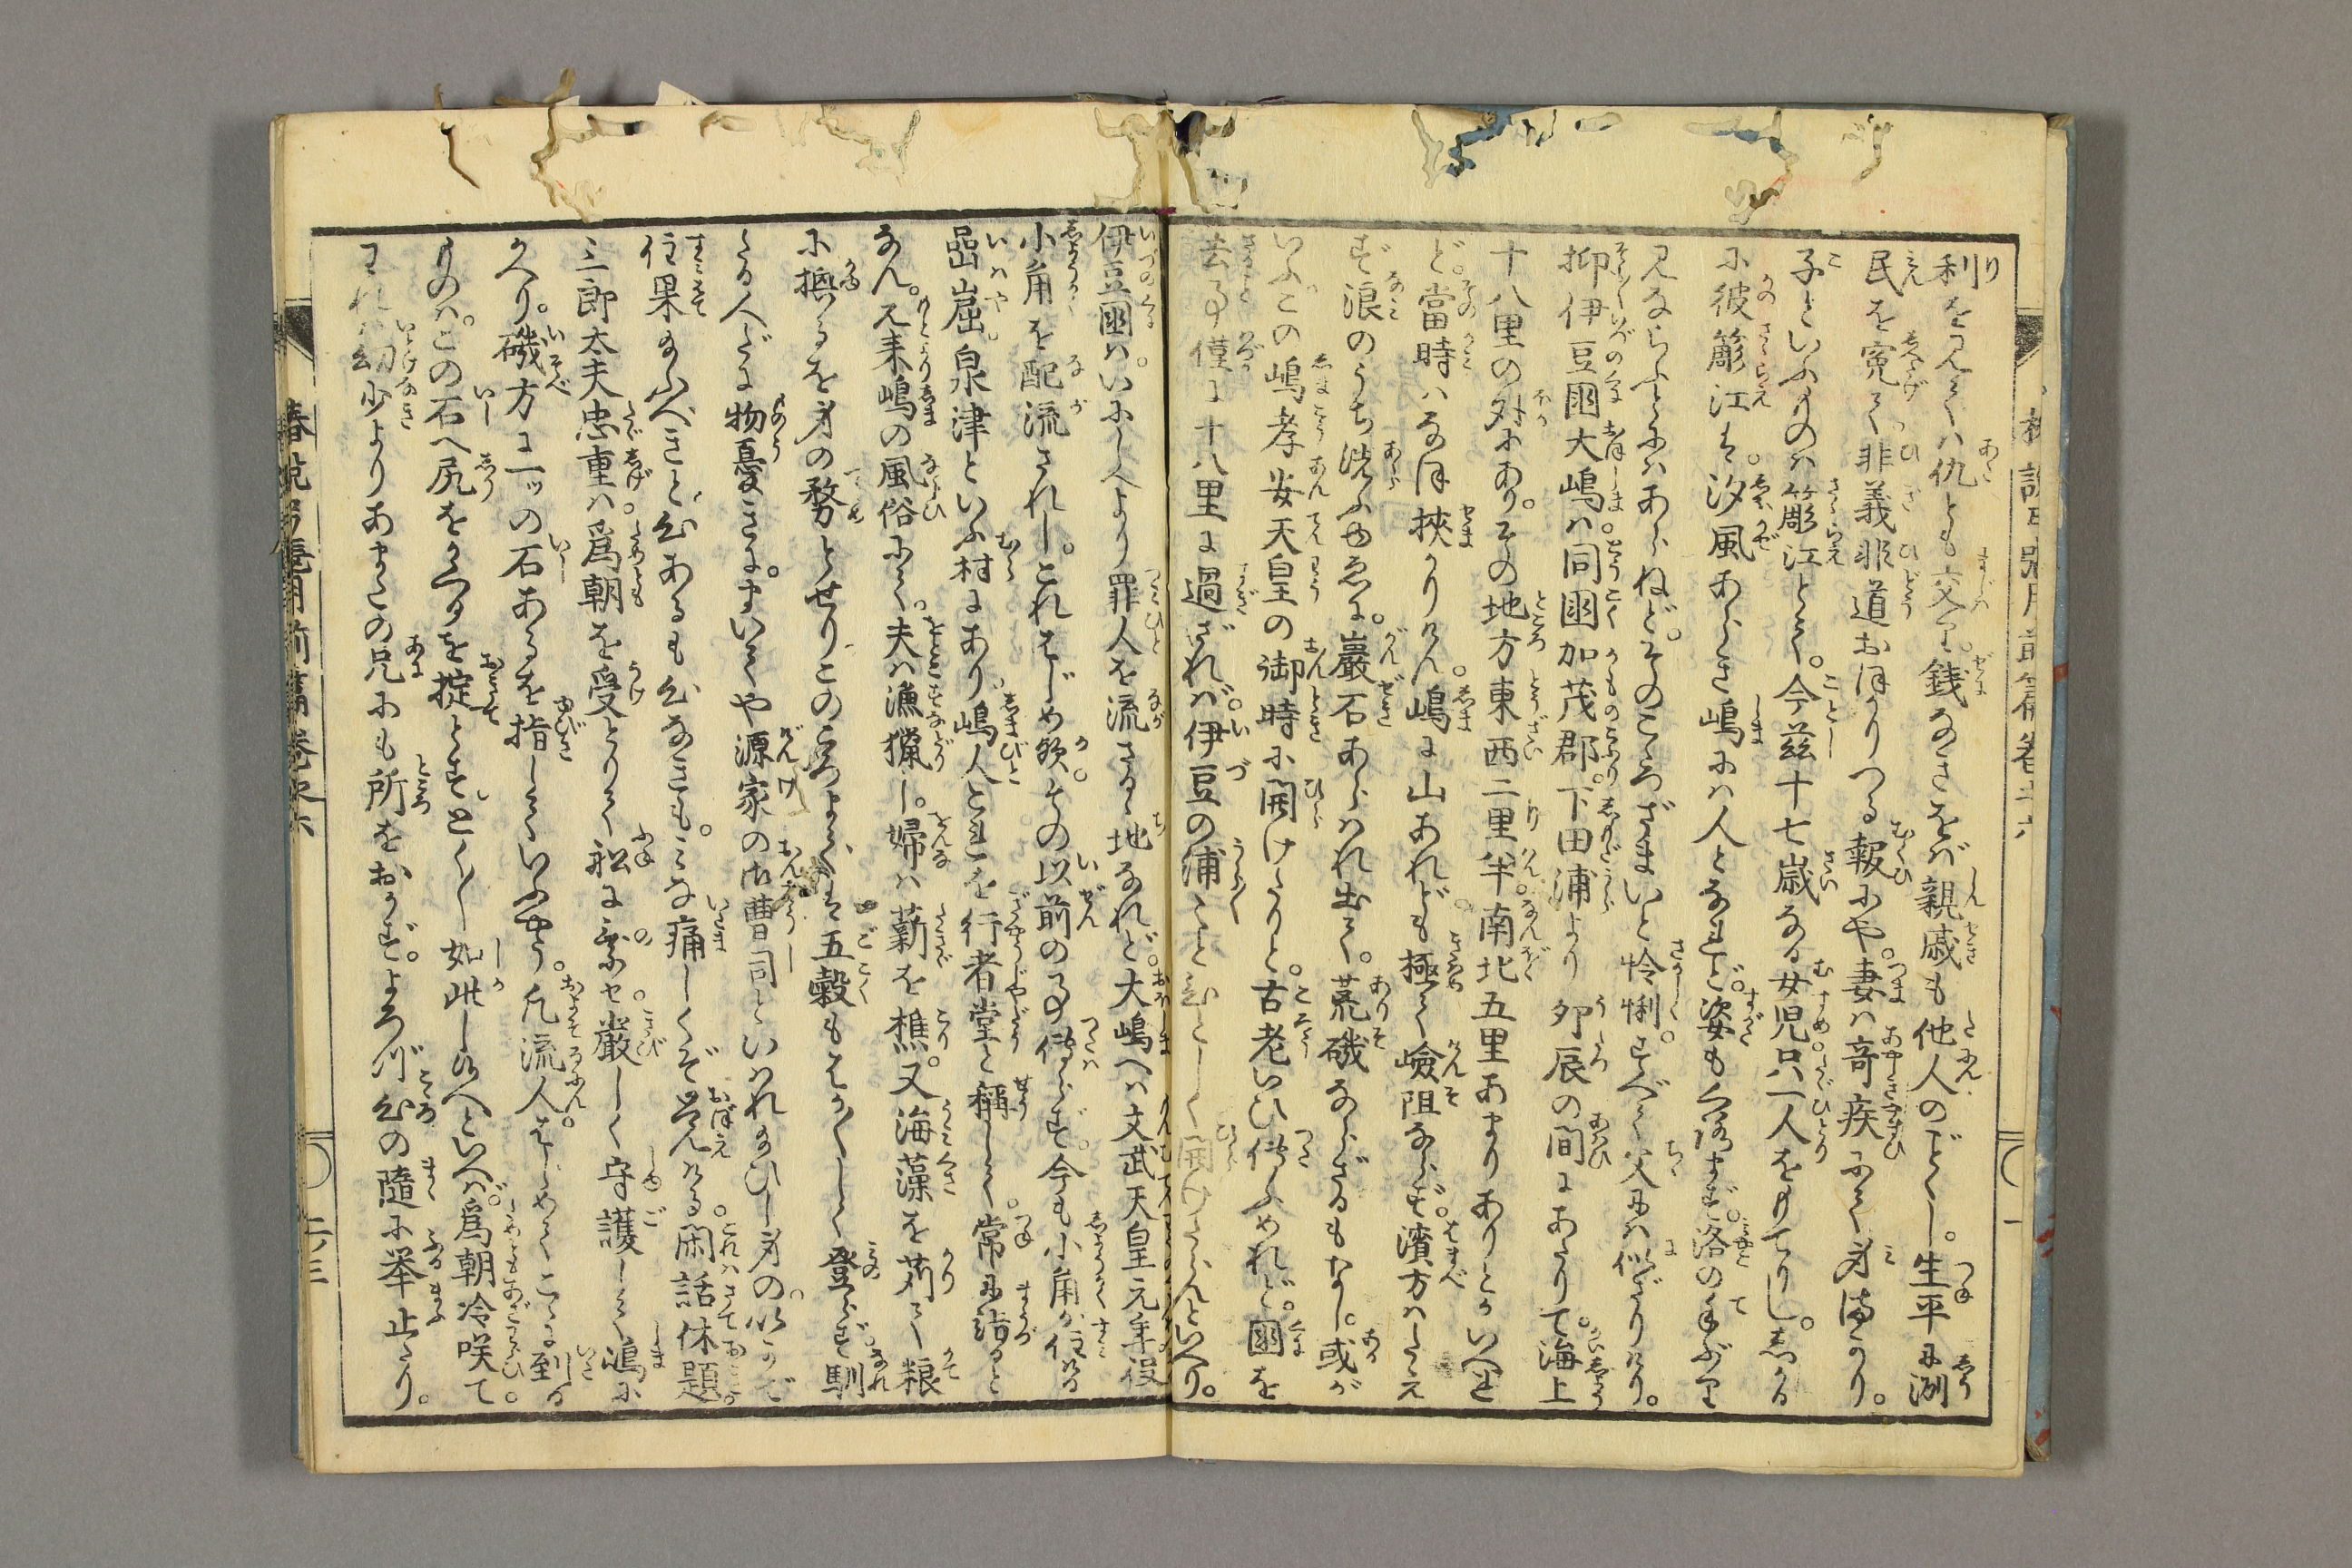 利を見ては仇とも交り。銭なきをば親戚も他人のごとし。生平に洌
民を寃て非義非道おほかりつる報にや。妻は奇疾にて身まかり。
子といふものは簓江とて。今茲十七歳なる女児只一人をもてりし。しかる
に彼簓江は。汐風あらき嶋には人となれど。姿もくろまず。洛の手ぶり
見ならふとにはあらねど。そのこゝろざまいと怜悧。すべて父には似ざりけり。
抑伊豆國大嶋は。同國加茂郡。下田浦より夘辰の間にあたりて。海上
十八里の外にあり。その地方東西二里半。南北五里あまりありとかいへれ
ど。當時はなほ挾かりけん。嶋に山あれども。極て嶮阻ならず。濱方はたえ
ず浪のうち洗ふゆゑに。巖石あらはれ出て。荒磯ならざるもなし。或が
いふこの嶋孝安天皇の御時に開けたりと。古老いひ傳ふめれど。國を
去る事僅に十八里に過ざれば。伊豆の浦〻とひとしく開けけんといへり。
伊豆國は。いにしへより罪人を流さるゝ地なれど。大嶋へは文武天皇元年役
小角を配流されし。これはじめ歟。その以前の事傳らず。今も小角が住ける
嵒窟。泉津といふ村にあり。嶋人これを行者堂と稱して。常に詣ると
なん。元来嶋の風俗にて。夫は漁獵し。婦は薪を樵。又海藻を苅て粮
に換るを身の務とせりこのころまでは五穀もはか〴〵しく登らず。馴
たる人だに物憂きに。まいてや源家の御曹司といはれ給ひし身の。いかで
住果給ふべきと。心あるも心なきも。みな痛しくぞ覚ける。閑話休題
三郎太夫忠重は。爲朝を受とりて舩に乗せ。厳しく守護して嶋に
かへり。磯方に一ッの石あるを指していふやう。凡流人はじめてこゝに到る
ものは。この石へ尻をかくるを掟とす。とく〳〵如此し給へといへば。爲朝冷咲て
われは幼少よりあまたの兄にも所をおかず。よろづ心の隨に挙止たり。
椿説弓張月前篇巻之六